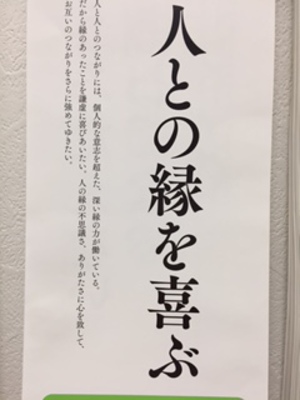 人との縁を喜ぶ
人と人とのつながりには、個人的な意志を超えた、深い縁の力が働いている。
だから縁のあったことを謙虚に喜びあいたい。人の縁の不思議さ、ありがたさに心を致して、
お互いのつながりをさらに強めてゆきたい。